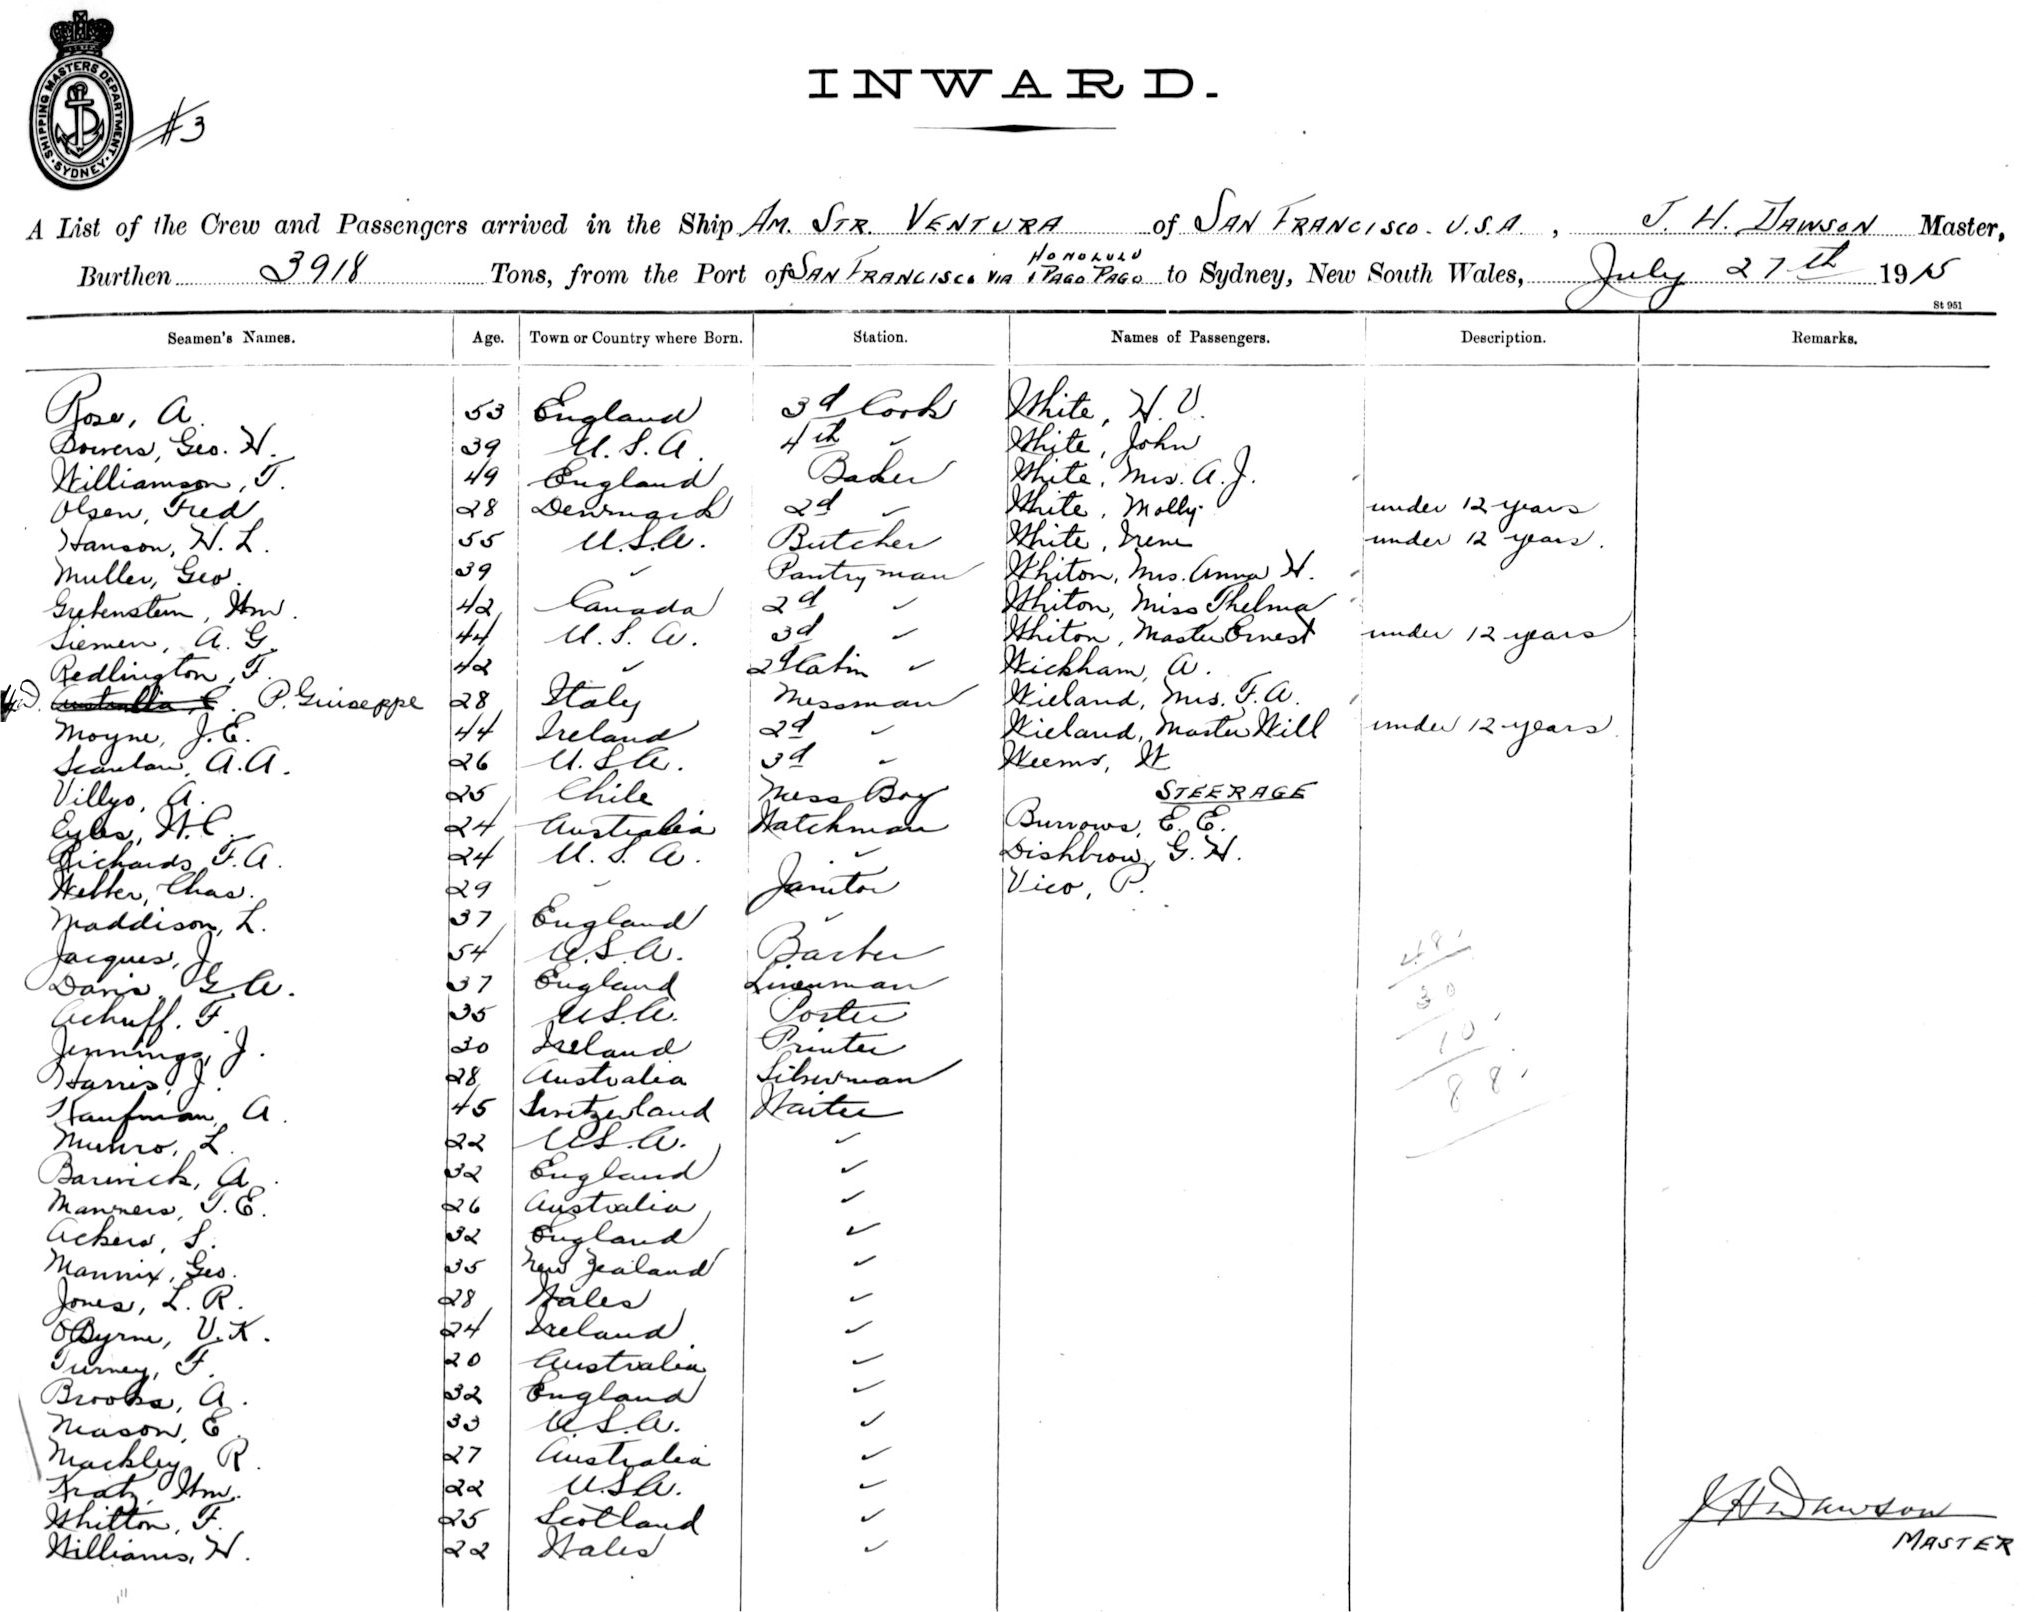 SHIPPING MASTERS DEPARTMENT · SYDNEY ·
#3
INWARD.
A List of the Crew and Passengers arrived in the Ship AM. STR. VENTURA of SAN FRANCISCO. U.S.A., J. H. DAWSON Master,
Burthen 3918 Tons, from the Port of SAN FRANCISCO VIA HONOLULU & PAGO PAGO to Sydney, New South Wales, July 27th 1915
St 951
Seamen's Names. Age. Town or Country where Born. Station. Names of Passengers. Description. Remarks.
Rose, A. 53 England 3d Cook White, H. V.
Bowers, Geo. W. 39 U.S.A. 4th ✓ White, John
Williamson, T. 49 England Baker White, Mrs. A. J.
Olsen, Fred 28 Denmark 2d ✓ White, Molly under 12 years
Hanson, H. L. 55 U.S.A. Butcher White, Irene under 12 years.
Muller, Geo. 39 ✓ Pantryman Whiton, Mrs. Anna H.
Grebenstein, Wm. 42 Canada 2d ✓ Whiton, Miss Thelma
Siemen, A. G. 44 U.S.A. 3d ✓ Whiton, Master Ernest under 12 years
Redlington, F. 42 ✓ 2d Cabin ✓ Wickham, A.
P. Giuseppe 28 Italy Messman Wieland, Mrs. F. A.
Moyne, J. E. 44 Ireland 2d ✓ Wieland, Master Will under 12 years.
Scanlan, A. A. 26 U.S.A. 3d ✓ Weems, W
Villyo, A. 25 Chile Mess Boy STEERAGE
Eyles, H. C. 24 Australia Watchman Burrows, E. E.
Richards, F. A. 24 U.S.A. ✓ Dishbrow, G. H.
Webber, Chas. 29 ✓ Janitor Vico, P.
Maddison, L. 37 England ✓
Jacques, J. 54 U.S.A. Barber
Davis, G. A. 37 England Linenman
Achuff, F. 35 U.S.A. Porter
Jennings, J. 30 Ireland Printer
Harris, J. 28 Australia Silverman
Kaufman, A. 45 Switzerland Waiter
Munro, L. 22 U.S.A. ✓
Barwick, A. 32 England ✓
Manners, T. E. 26 Australia ✓
Ackers, S. 32 England ✓
Mannix, Geo. 35 New Zealand ✓
Jones, L. R. 28 Wales ✓
O'Byrne, V. K. 24 Ireland ✓
Turney, F. 20 Australia ✓
Brooks, A. 32 England ✓
Mason, E. 33 U.S.A. ✓
Mackley, R. 27 Australia ✓
Kratz, Wm. 22 U.S.A. ✓
Whitton, F. 25 Scotland ✓
Williams, H. 22 Wales ✓
48
30
10
88
J H Dawson
MASTER